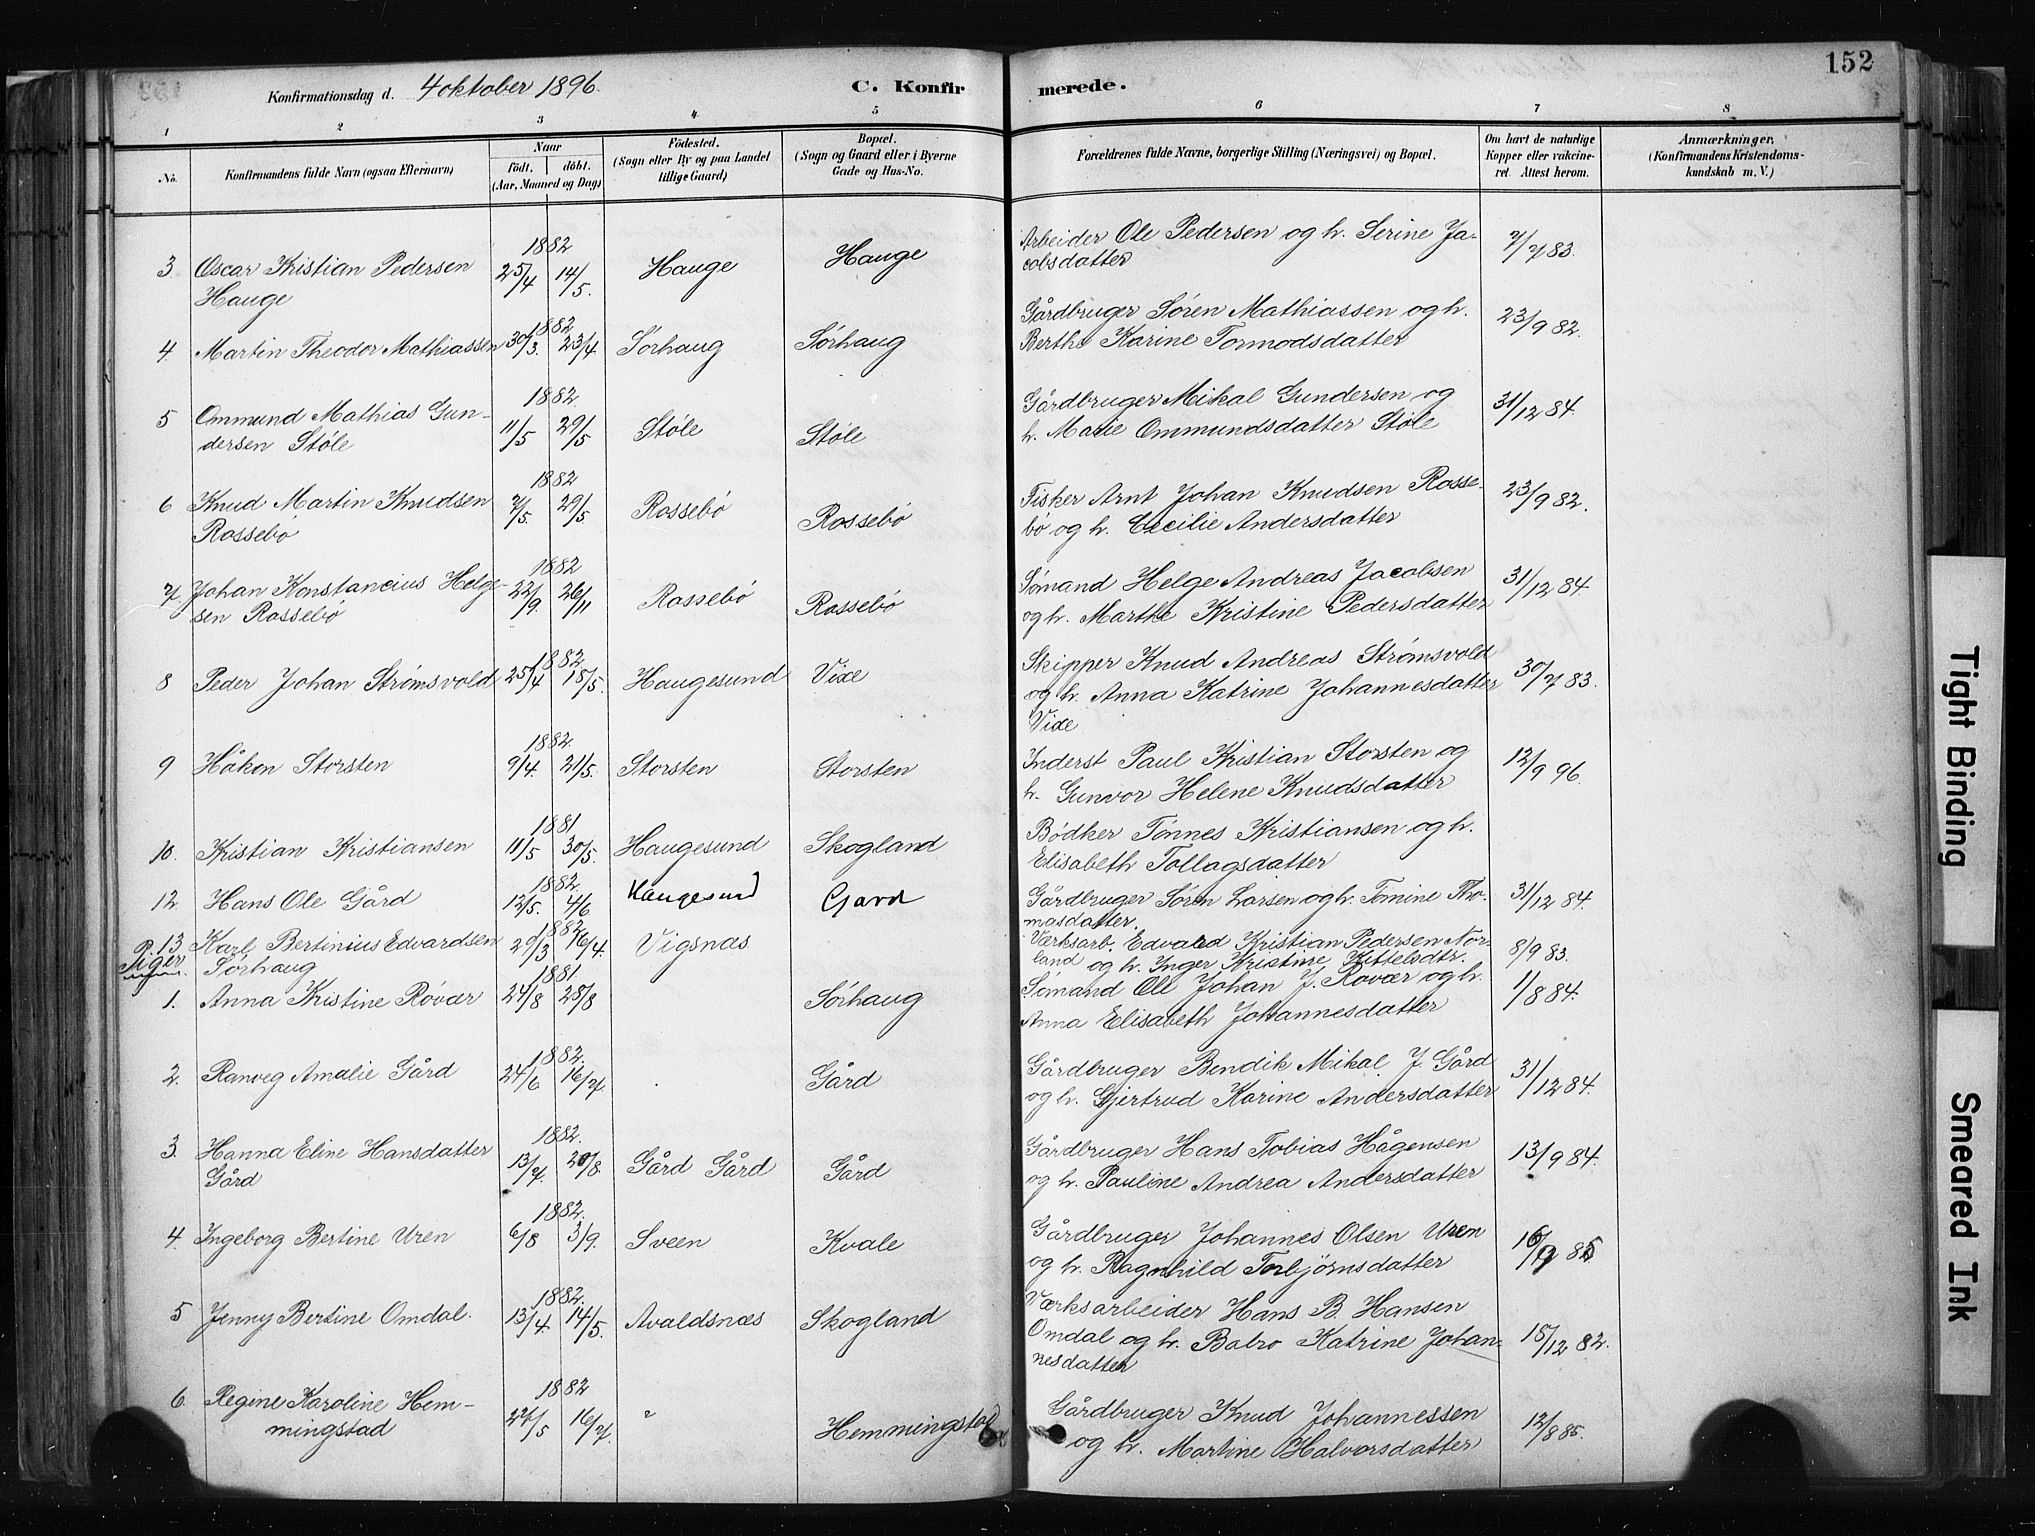 152
Konfirmationsdag d. 4 oktober 1896.
C. Konfir merede.
1 2 3 4 5 6 7 8
No.
Konfirmandens fulde Navn (ogsaa Efternavn)
Naar
Födt. döbt.
(Aar, Maaned og Dag)
Födested.
(Sogn eller By og paa Landet
tillige Gaard)
Bopæl.
(Sogn og Gaard eller i Byerne
Gade og Hus-No.
Forældrenes fulde Navne, borgerlige Stilling (Næringsvei) og Bopæl.
Om havt de naturlige
Kopper eller vakcine-
ret. Attest herom.
Anmærkninger,
(Konfirmandens Kristendoms-
kundskab m. V.)
1882
3. Oscar Kristian Pedersen 25/4 14/5. Hauge Hauge Arbeider Ole Pedersen og h. Serine Ja- 7/7 83.
Hauge cobsdatter
1882
4. Martin Theodor Mathiassen 30/3. 23/4 Sørhaug Sørhaug Gårdbruger Søren Mathiassen og h. 23/9 82.
Berthe Karine Tormodsdatter
1882
5 Ommund Mathias Gun- 11/5 29/5 Støle Støle Gårdbruger Mikal Gundersen og 31/12 84.
dersen Støle h. Marie Ommundsdatter Støle
1882
6 Knud Martin Knudsen 7/5. 29/5 Rossebø Rossebø Fisker Arnt Johan Knudsen Rosse- 23/9 82.
Rossebø bø og h. Cecilie Andersdatter
1882
7. Johan Konstancius Helge- 22/9. 26/11 Rossebø Rossebø Sømand Helge Andreas Jacobsen 31/12 84.
sen Rossebø og h. Marthe Kristine Pedersdatter
1882
8 Peder Johan Strømsvold 25/4 18/5. Haugesund Vixe Skipper Knud Andreas Strømsvold 30/7 83.
og h. Anna Katrine Johannesdatter
Vixe
1882.
9 Håkon Storsten 9/4. 21/5. Storsten Storsten Inderst Paul Kristian Storsten og 12/9 96.
h. Gunvor Helene Knudsdatter
1881
10. Kristian Kristiansen 11/5 30/5. Haugesund Skogland Bødker Tønnes Kristiansen og h.
Elisabeth Tollagsdatter
1882.
12. Hans Ole Gård 12/5. 4/6 Haugesund Gard Gårdbruger Søren Larsen og h. Tomine Tho- 31/12 84.
masdatter.
1882
13 Karl Bertinius Edvardsen 29/3 16/4. Vigsnæs Værksarb. Edvard Kristian Pedersen Nor- 8/9 83.
Sørhaug land og h. Inger Kristine Kittelsdtr.
Piger
1881
1. Anna Kristine Røvær 24/8 28/8 Sørhaug Sømand Ole Johan J. Røvær og h. 1/8 84.
Anna Elisabeth Johannesdatter
1882.
2. Ranveg Amalie Gård 24/6 16/7. Gård Gårdbruger Bendik Mikal J. Gård 31/12 84.
og h. Gjertrud Karine Andersdatter
1882.
3. Hanna Eline Hansdatter 13/7. 20/8. Gård Gård Gård Gårdbruger Hans Tobias Hågensen 13/9 84.
Gård og h. Pauline Andrea Andersdatter
1882.
4. Ingeborg Bertine Uren 6/8 3/9. Sveen Kvale Gårdbruger Johannes Olsen Uren 16/9 85
og h. Ragnhild Torbjørnsdatter
1882.
5 Jenny Bertine Omdal. 13/4. 14/5. Avaldsnæs Skogland Værksarbeider Hans B. Hansen
Omdal og h. Balro Katrine Johan- 15/12 82.
nesdatter
1882
6. Regine Karoline Hem- 27/5 16/7. " Hemmingstad Gårdbruger Knud Johannessen 12/8 85.
mingstad og h. Martine Halvorsdatter
Tight Binding
Smeared Ink